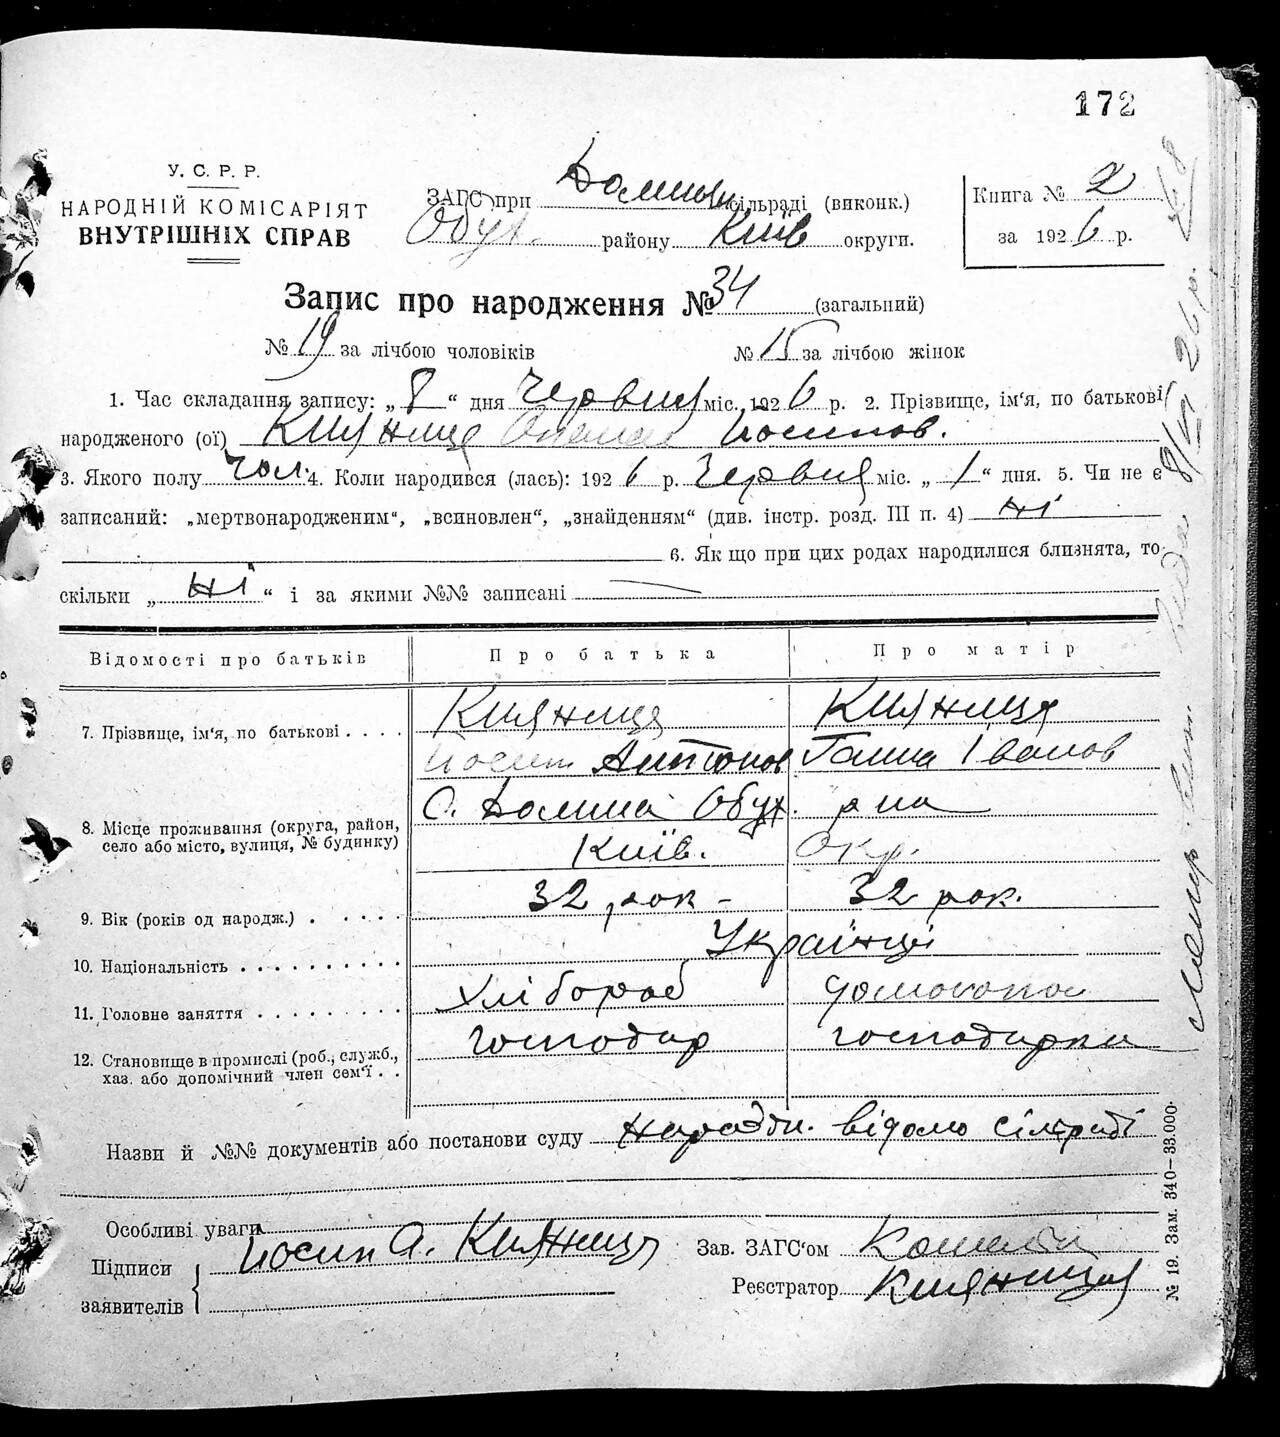 172
У. С. Р. Р.
НАРОДНІЙ КОМІСАРІЯТ
ВНУТРІШНІХ СПРАВ
ЗАГС при Долинян сільраді (виконк.)
Обух. району Київ округи.
Книга № 2
за 1926 р.
Запис про народження № 34 (загальний)
№ 19 за лічбою чоловіків № 15 за лічбою жінок
1. Час складання запису: „8“ дня Червня міс. 1926 р. 2. Прізвище, ім'я, по батькові
народженого (ої) Кияниця Йосипов.
3. Якого полу чол. 4. Коли народився (лась): 1926 р. Червня міс. „1“ дня. 5. Чи не є
записаний: „мертвонародженим“, „всиновлен“, „знайденням“ (див. інстр. розд. III п. 4) Ні
6. Як що при цих родах народилися близнята, то
скільки „ні“ і за якими №№ записані —
Відомості про батьків Про батька Про матір
7. Прізвище, ім'я, по батькові . . . . Кияниця Кияниця
Йосип Антонов Ганна Іванов
8. Місце проживання (округа, район, село або місто, вулиця, № будинку) С. Долина Обух. р на
Київ. Окр.
9. Вік (років од народж.) . . . . . 32 рок - 32 рок.
10. Національність . . . . . . . . . . Українці
11. Головне заняття . . . . . . . . . Хлібороб
12. Становище в промислі (роб., служб., хаз. або допомічний член сем'ї . . господар господарка
Назви й №№ документів або постанови суду відомо сільраді
Особливі уваги
Підписи заявителів Йосип А. Кияниця
Зав. ЗАГС'ом
Реєстратор Кияниця
№ 19. Зам. 340—33.000.